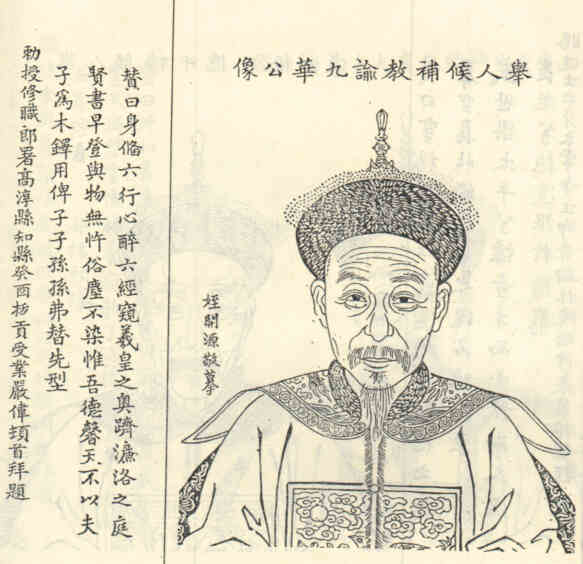 舉人候補教諭九華公像
姪開源敬摹
贊曰身修六行心醉六經窺羲皇之奧躋濂洛之庭
賢書早登與物無忤俗塵不染惟吾德馨天不以夫
子爲木鐸用俾子子孫孫弗替先型
勅授修職郎署高淳縣知縣癸酉拔貢受業嚴偉頓首拜題